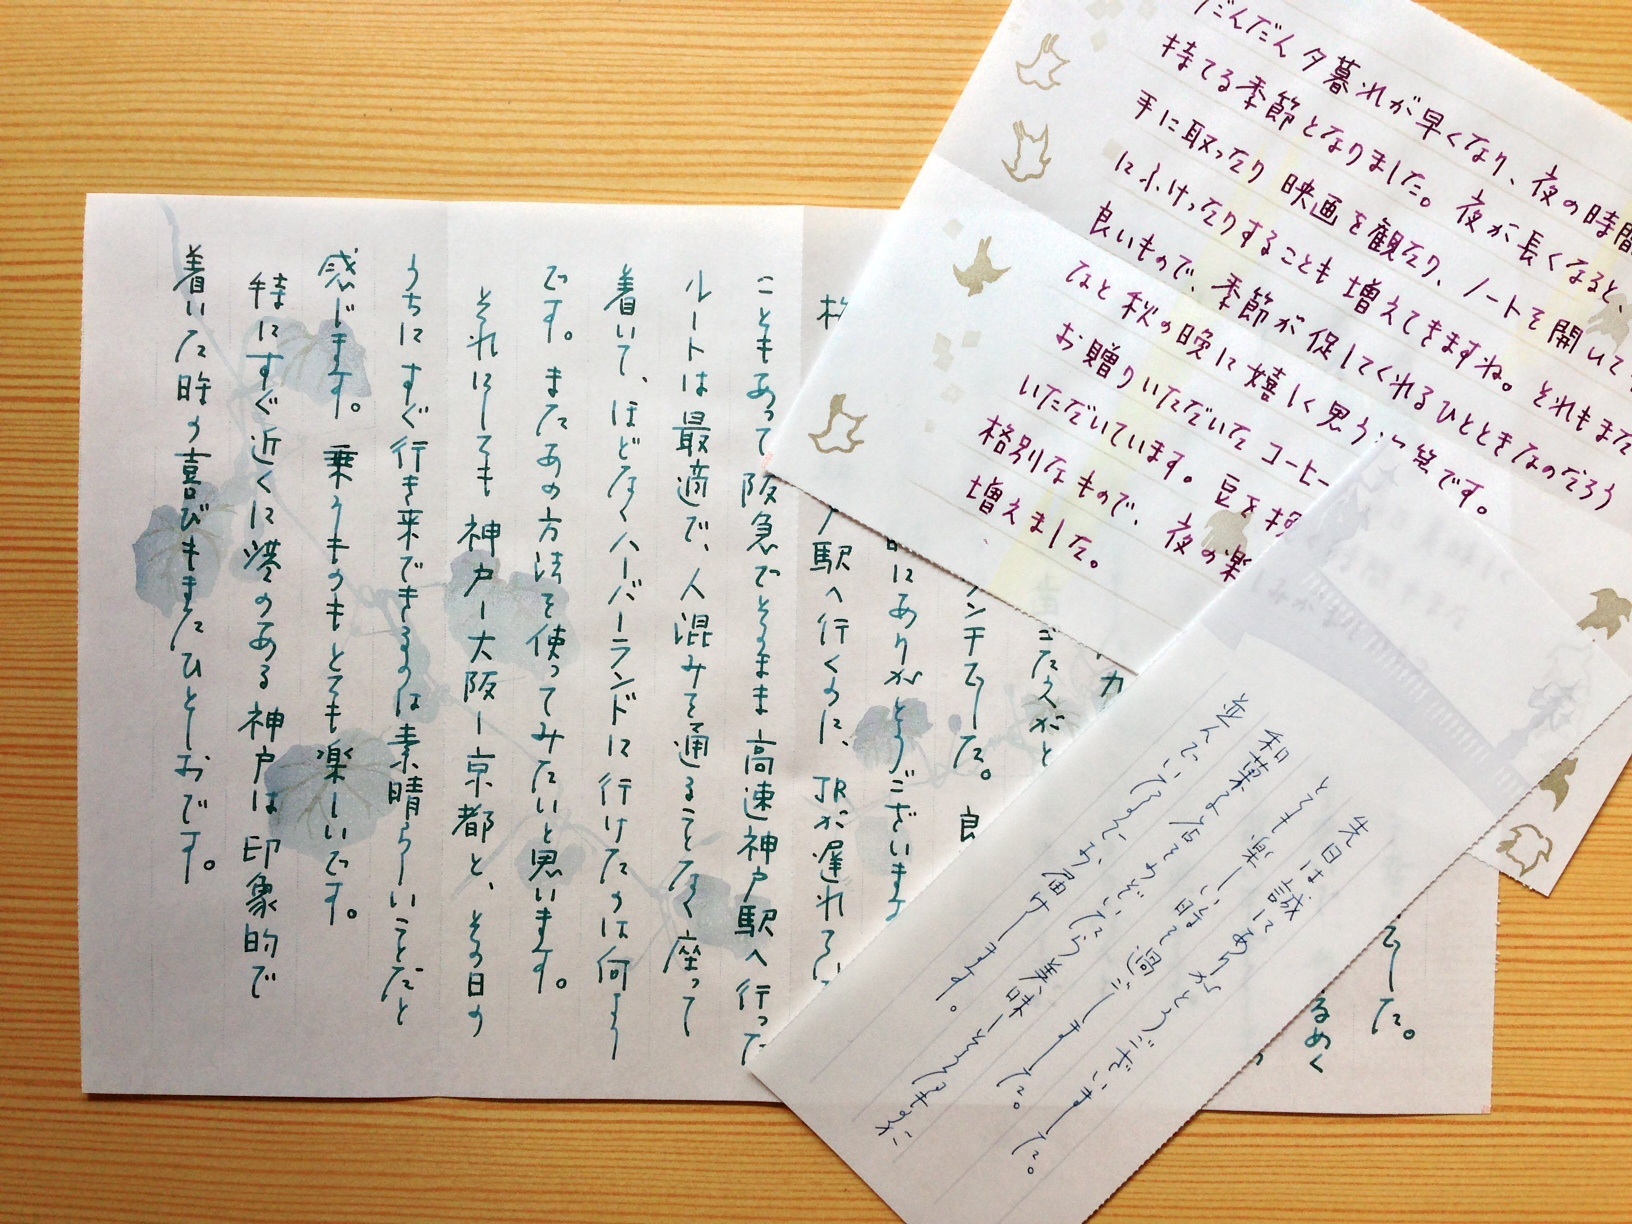 だんだん夕暮れが早くなり、夜の時間
持てる季節となりました。夜が長くなると、
手に取ったり映画を観たり、ノートを開いて
にふけったりすることも増えてきますね。それもまた
良いもので、季節が促してくれるひとときなのだろう
なと秋の晩に嬉しく思う
です。
お贈りいただいたコーヒー
いただいています。豆を
格別なもので、夜の楽
増えました。
先日は誠にありがとうございました。
とても楽しい時を過ごしました。
和菓子
美味しそうなものが
並んでいましたのでお届けします。
でした。
るめく
こたえがと
ランチでした。良
にありがとうございます
駅へ行くのに、JRが遅れてい
こともあって阪急でそのまま高速神戸駅へ行った
ルートは最適で、人混みを通ることなく座って
着いて、ほどなくハーバーランドに行けたのは何より
です。またあの方法を使ってみたいと思います。
それにしても神戸ー大阪ー京都と、その日の
うちにすぐ行き来できるのは素晴らしいことだと
感じます。乗りものもとても楽しいです。
特にすぐ近くに港のある神戸は印象的で
着いた時の喜びもまたひとしおです。